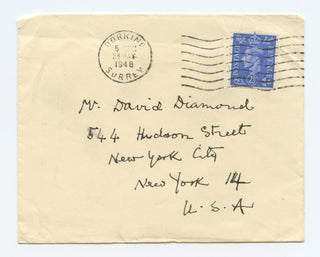 DORKING
24 MAY
1948
SURREY
Mr. David Diamond
544 Hudson Street
New York City
New York 14
U.S.A